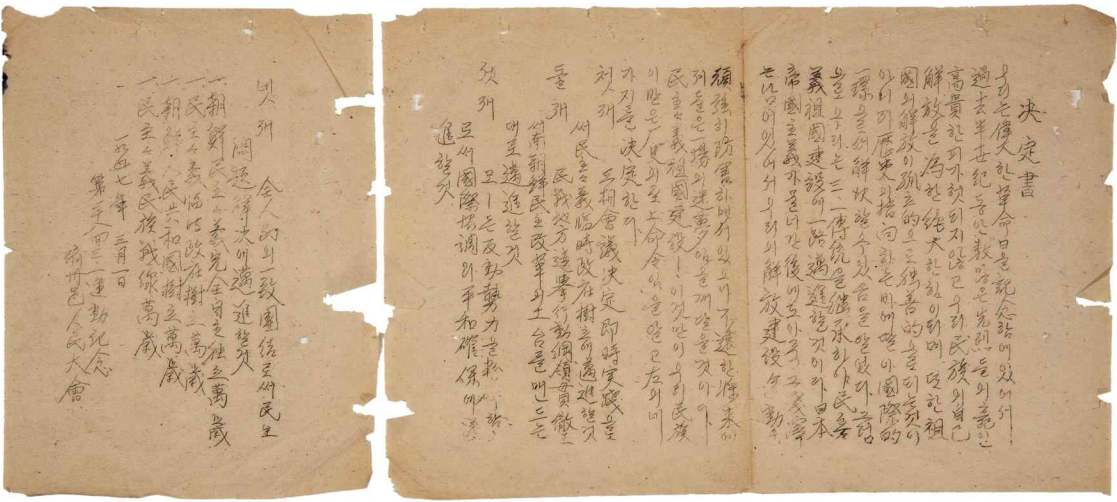 決定書
우리는 偉大한 革命日을 記念함에 있어서
過去 半世紀동안 数많은 先烈들의 흘인
高貴한 피가 헛되지 않고 우리 民族의 自己
解放을 為한 絶大한 힘이 되며 또한 祖
國의 解放이 孤立的으로 独善的으로 되는 것이
아니라 歷史의 指向하는 바에 딸아 國際的
一環으로써 解決할 수 있음을 알었다
으로 우리는 三一傳統을 継承하야 民主々
義祖國建設에 一路邁進할 것이라 日本
帝國主義가 물너간 後에도 아즉 그 残滓
는 남어있어서 우리의 解放建設
頑强히 防害하며 있으니 不運한
것들은 一場의 迷夢임을 깨달을 것이
民主々義祖國建設! 이것만이 우리 民族
이 받은 歷史의 至上命令임을 알고 左의 네
가지를 決定한다
첫재 三相會議決定 即時実践으로
써 民主々義臨時政府樹立에 邁進할 것
둘재 民戦地方選擧行動綱領貫徹로
써 南朝鮮民主改革의 土台를 맨드는
데로 邁進할 것
셋재 모ー든 反動勢力을
로써 國際協調의 平和確保에 邁
進할 것
넷재 全人民의 一致團結로써 民生
問題 解決에 邁進할 것
一 朝鮮民主々義完全自主独立萬歲
一 民主々義臨時政府樹立萬歲
一 朝鮮人民共和國樹立萬歲
一 民主々義民族戦線萬歲
一九四七年 三月一日
第二十八回三一運動紀念
邑人民大會